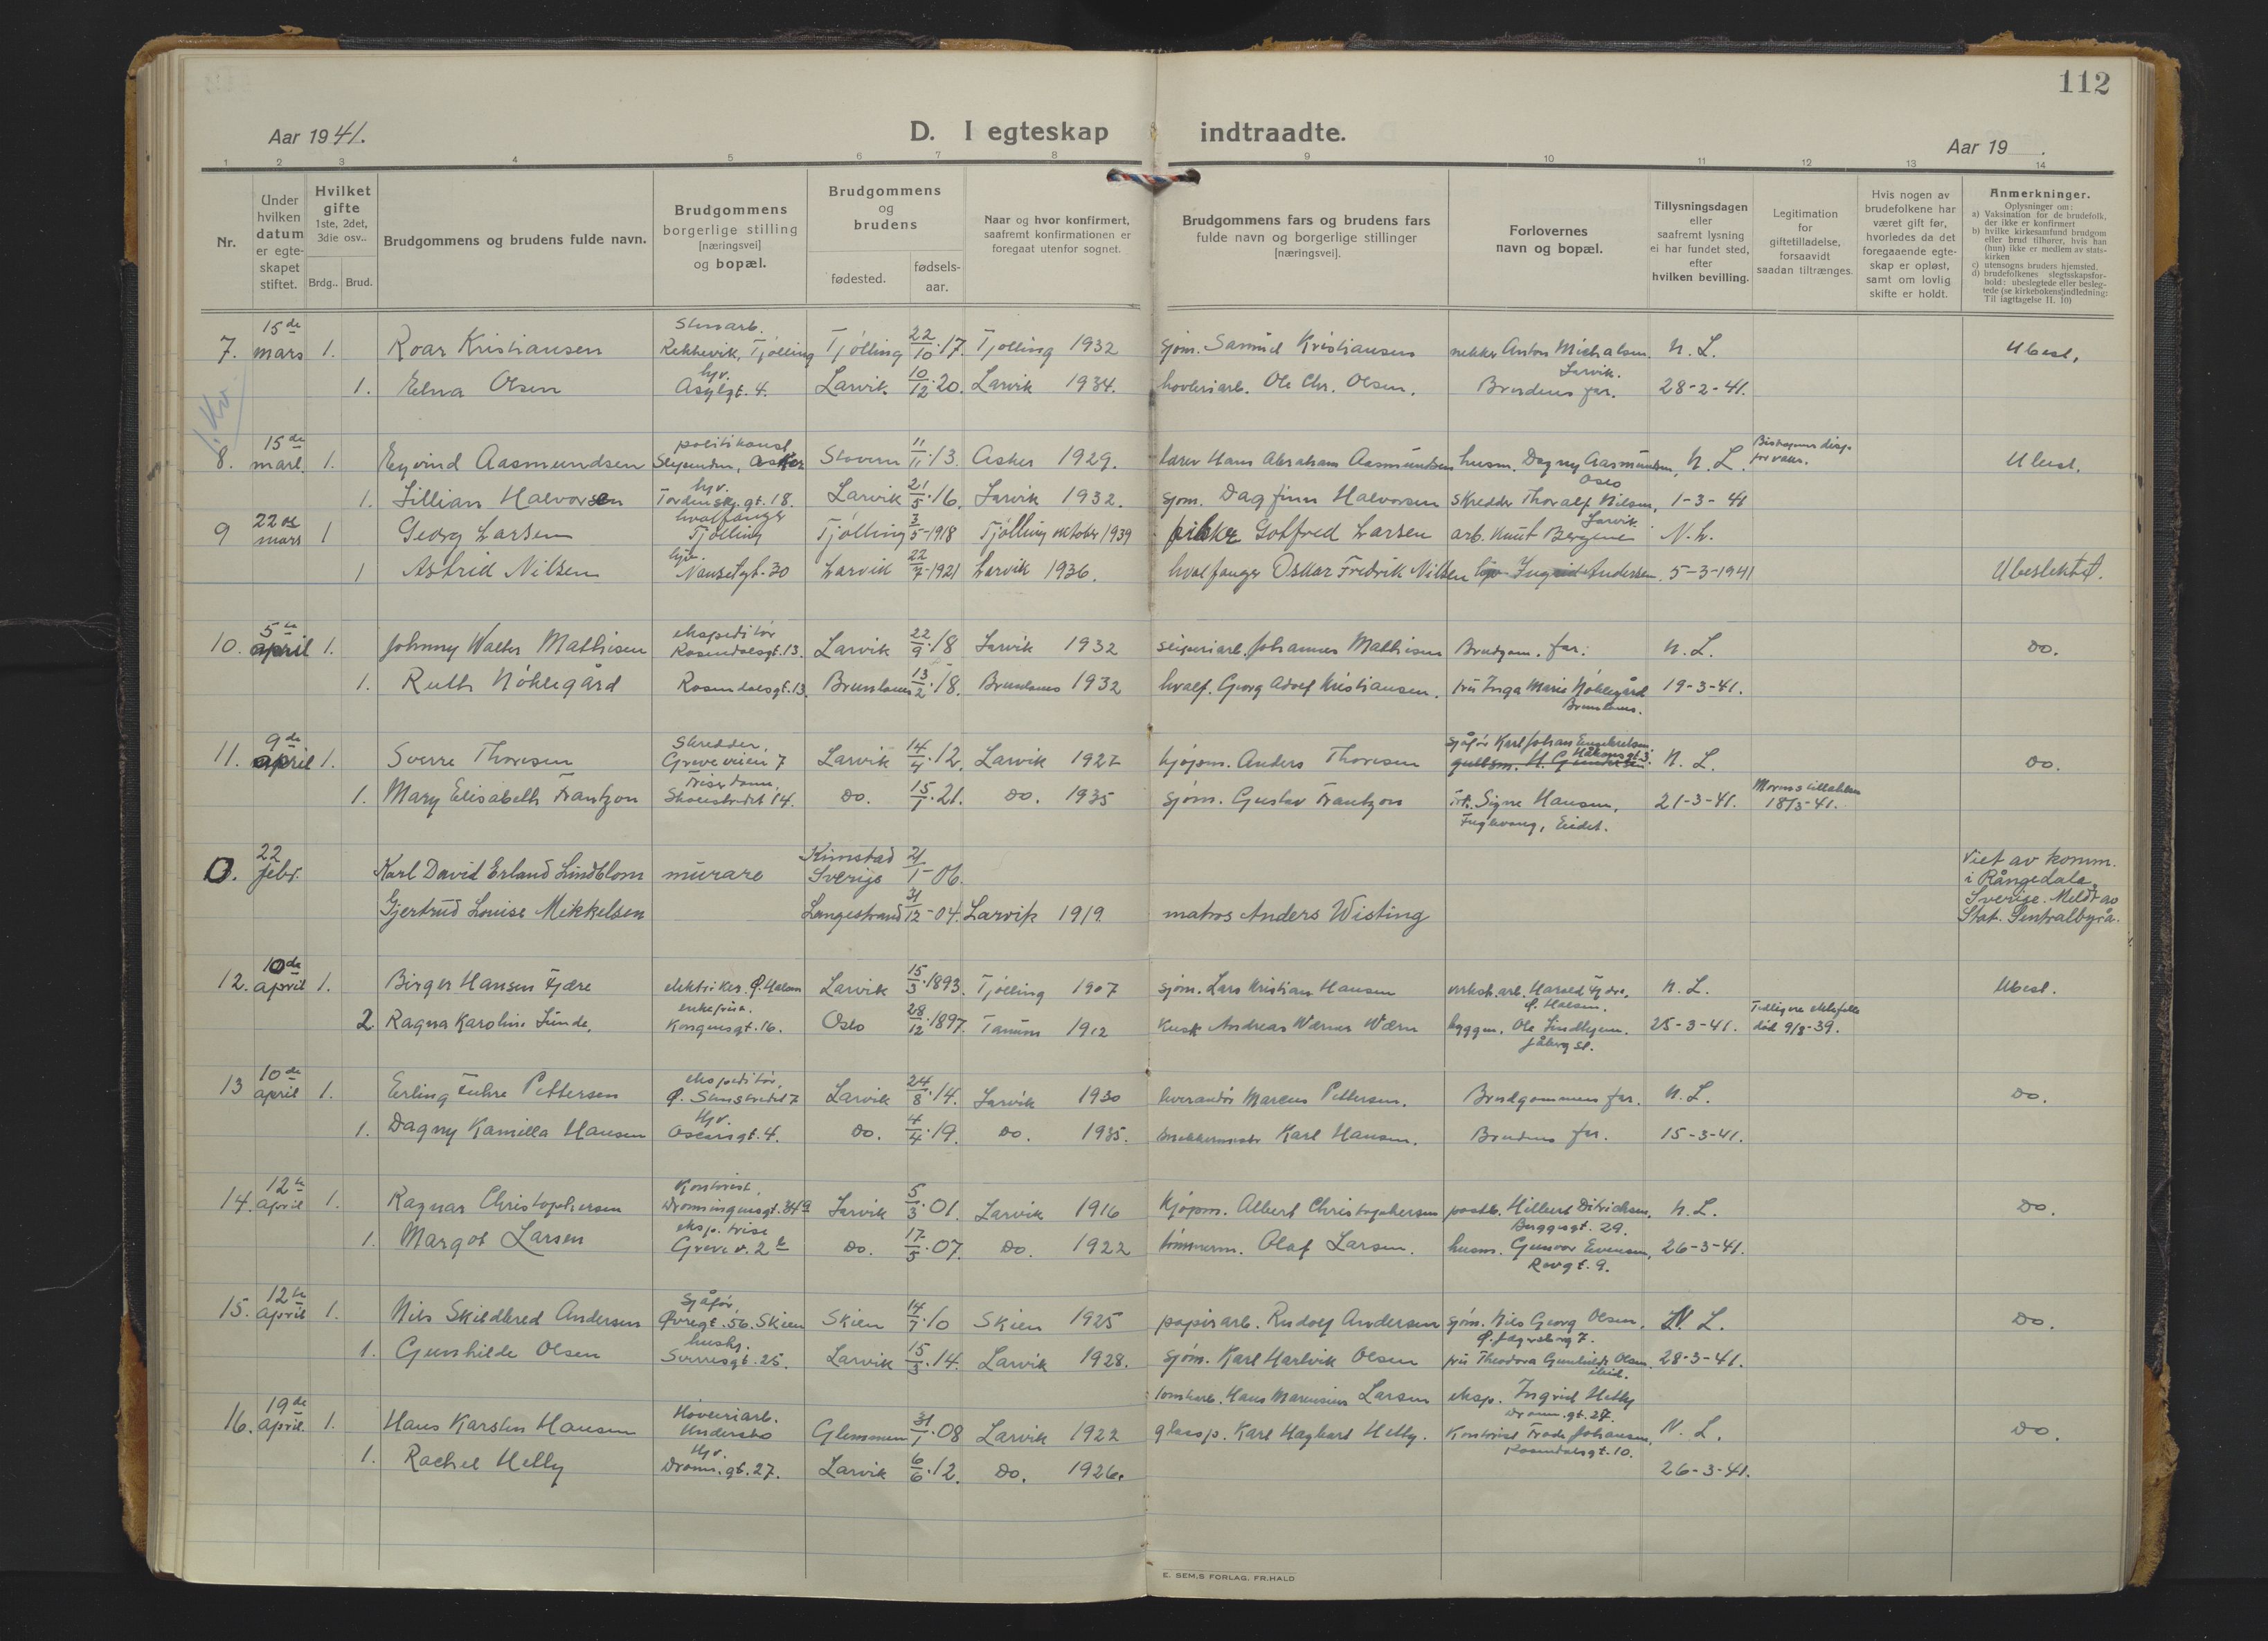 112
Aar 1941.
D. I egteskap indtraadte.
Aar 19 .
1 2 3 4 5 6 7 8 9 10 11 12 13 14
Nr.
Under hvilken datum er egte-skapet stiftet.
Hvilket gifte 1ste, 2det, 3die osv..
Brdg.. Brud.
Brudgommens og brudens fulde navn.
Brudgommens borgerlige stilling [næringsvei] og bopæl.
Brudgommens og brudens
fødested. fødsels-aar.
Naar og hvor konfirmert, saafremt konfirmationen er foregaat utenfor sognet.
Brudgommens fars og brudens fars fulde navn og borgerlige stillinger [næringsvei].
Forlovernes navn og bopæl.
Tillysningsdagen eller saafremt lysning ei har fundet sted, efter hvilken bevilling.
Legitimation for giftetilladelse, forsaavidt saadan tiltrænges.
Hvis nogen av brudefolkene har været gift før, hvorledes da det foregaaende egte-skap er opløst, samt om lovlig skifte er holdt.
Anmerkninger.
Oplysninger om:
a) Vaksination for de brudefolk, der ikke er konfirmert
b) hvilke kirkesamfund brudgom eller brud tilhører, hvis han (hun) ikke er medlem av stats-kirken
c) utensogns bruders hjemsted.
d) brudefolkenes slegtsskapsfor-hold: ubeslegtede eller besleg-tede (se kirkebokens indledning: Til iagttagelse II. 10)
7. 15de mars 1. Roar Kristiansen Stenarb. Rekkevik, Tjølling Tjølling 22/10.17. Tjølling 1932 sjøm. Samuel Kristiansen Anton Michalsen Larvik. N. L. Ubesl.
1. Elna Olsen hv. Asylgt. 4. Larvik 10/12.20. Larvik 1934. høvleriarb. Ole Chr. Olsen. Brudens far. 28-2-41.
8. 15de 1. Eyvind Aasmundsen politikonst. Asker Stavern 11/11.13. Asker 1929. lærer Hans Abraham Aasmundsen husm. Dagny Aasmundsen, Oslo N. L. Bispens disp. Ubesl.
1. Lillian Halvorsen hv. Tordenskj.gt. 18. Larvik 21/5.16. Larvik 1932. sjøm. Dagfinn Halvorsen skredder Thoralf Nilsen, Larvik 1-3-41
9 22de mars 1 Georg Larsen hvalfanger Tjølling Tjølling 3/5-1918 Tjølling oktober 1939 fisker Gotfred Larsen arb. Knut Bergene N. L.
1 Astrid Nilsen hjv. Nansetgt. 30 Larvik 22/7-1921 Larvik 1936. hvalfanger Oskar Fredrik Nilsen hjv. Ingrid Andersen. 5-3-1941 Ubeslektet.
10. 5te april 1. Johnny Walter Mathisen ekspeditør Rosendalsgt. 13. Larvik 22/9.18 Larvik 1932 Johannes Mathisen Brudgom. far. N. L. Do.
1. Ruth Nøklegård Rosendalsgt. 13. Brunlanes 13/2.18. Brunlanes 1932 hvalf. Georg Adolf Kristiansen. fru Inga Marie Nøklegård Brunlanes. 19-3-41.
11. 9de april 1. Sverre Thoresen Skredder, Greveveien 7 Larvik 14/4.12. Larvik 1927 kjøpm. Anders Thoresen sjåfør Karl Johan Engebretsen Håkonsgt. 3. gullsm. H. Gundersen N. L. Do.
1. Mary Elisabeth Frantzon Friserdame Skolestredet 14. Do. 15/1.21. Do. 1935 sjøm. Gustav Frantzon frk. Signe Hansen, Fuglevang, Eidet. 21-3-41. Morens tillatelse 18/3-41.
0. 22 febr. Karl David Erland Lindblom murare Kimstad Sverige 21/1-06.
Gjertrud Louise Mikkelsen Langestrand 31/12-04. Larvik 1919. matros Anders Wisting
Viet av komm. i Rångedala, Sverige. Meldt av Stat. Sentralbyrå.
12. 10de april 1. Birger Hansen Fjære elektriker. Ø. Halsen Larvik 15/3.1893. Tjølling 1907 sjøm. Lars Kristian Hansen verkst.arb. Harald Fjære, Ø. Halsen. N. L. Ubesl.
2 Ragna Karoline Lunde, enkefrue. Kongensgt. 16. Oslo 28/12.1897. Tanum 1912 Kusk Andreas Werner Wærn byggm. Ole Lindhjem. Jåberg st. 25-3-41. Tidligere ektefelle død 9/8-39.
13 10de april 1. Erling Tuhre Pettersen ekspeditør, Ø. Stenstredet 7 Larvik 24/8.14. Larvik 1930 leverandør Marcus Pettersen. Brudgommens far. N. L. Do.
1. Dagny Kamilla Hansen Hjv. Oscarsgt. 4. Do. 4/4.19. Do. 1935. Karl Hansen. Brudens far. 15-3-41.
14. 12te april 1. Ragnar Christophersen Kontorist, Dronningensgt. 34a Larvik 5/3.01. Larvik 1916 Kjøpm. Albert Christophersen postb. Hilbert Ditrichsen, Berggsgt. 29. N. L. Do.
1. Margot Larsen eksp. trise Greve v. 2b Do. 17/5.07. Do. 1922 tømmerm. Olaf Larsen. husm. Gunvor Evensen, Revgt. 9. 26-3-41.
15. 12te april 1. Nils Skildbred Andersen Sjåfør, Øvregt. 56. Skien Skien 14/7.10 Skien 1925 papirarb. Rudolf Andersen sjøm. Nils Georg Olsen, N. L. Do.
1. Gunhilde Olsen hushj. Sverresgt. 25. Larvik 15/3.14. Larvik 1928. sjøm. Karl Hartvik Olsen fru Theodora Gunhilde Olsen ibid. 28-3-41.
16. 19de april. 1. Hans Karsten Hansen Høvleriarb. Undersbo Glemmen 31/1.08 Larvik 1922 tomtearb. Hans Marensius Larsen eksp. Ingrid Helby Dronn.gt. 27. N. L. Do.
1. Rachel Helby Hjv. Dronn.gt. 27. Larvik 6/6.12. Do. 1926. glassp. Karl Hagbart Helby. Kontorist Frode Johansen, Rosendalsgt. 10. 26-3-41.
E. SEM,S FORLAG, FR.HALD